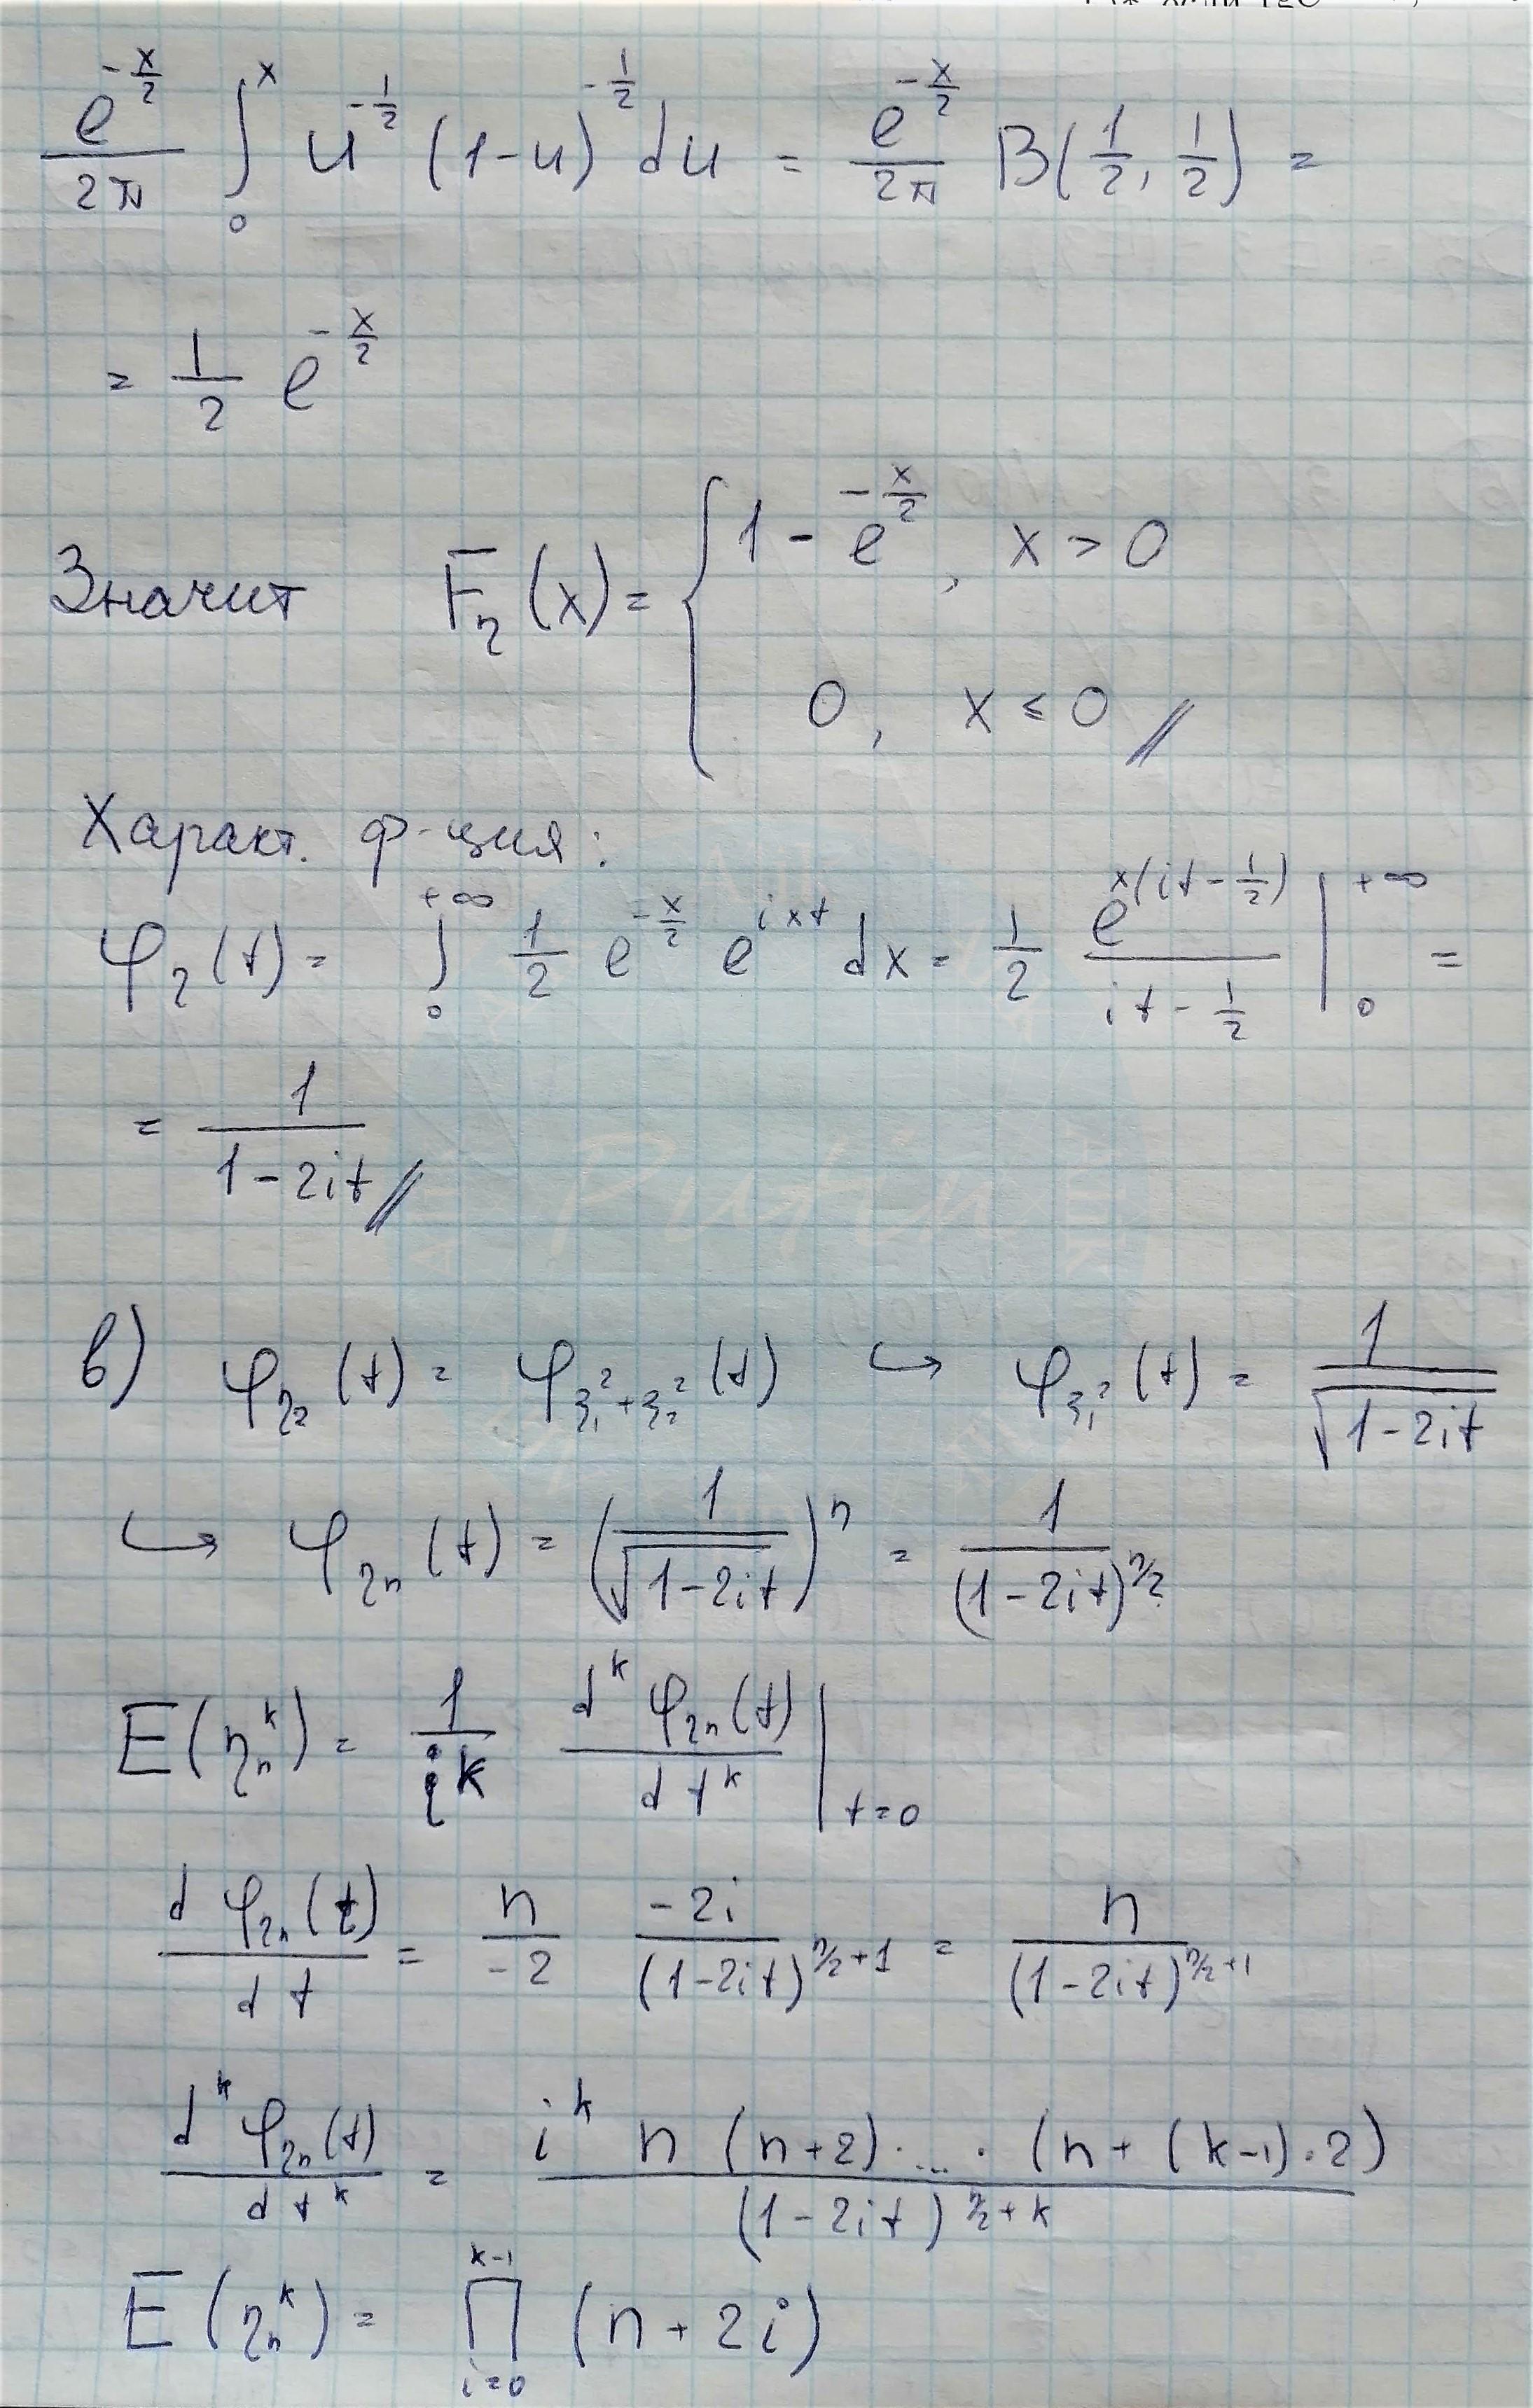 e^{-x/2}/2π ∫_0^x u^{-1/2} (1-u)^{-1/2} du = e^{-x/2}/2π B(1/2, 1/2) =
= 1/2 e^{-x/2}
Значит F_η(x) = { 1 - e^{-x/2}, x > 0
0, x ≤ 0 //
Характ. ф-ция:
φ_η(t) = ∫_0^{+∞} 1/2 e^{-x/2} e^{ixt} dx = 1/2 e^{x(it - 1/2)}/(it - 1/2) |_0^{+∞} =
= 1/(1-2it) //
в) φ_{η_2}(t) = φ_{ξ_1^2+ξ_2^2}(t) ↪ φ_{ξ_1^2}(t) = 1/√(1-2it)
↪ φ_{η_n}(t) = (1/√(1-2it))^n = 1/(1-2it)^{n/2}
E(η_n^k) = 1/i^k d^k φ_{η_n}(t)/dt^k |_{t=0}
d φ_{η_n}(t)/dt = n/-2 -2i/(1-2it)^{n/2+1} = n/(1-2it)^{n/2+1}
d^k φ_{η_n}(t)/dt^k = i^k n (n+2)·...·(n+(k-1)·2)/(1-2it)^{n/2+k}
E(η_n^k) = ∏_{i=0}^{k-1} (n+2i)